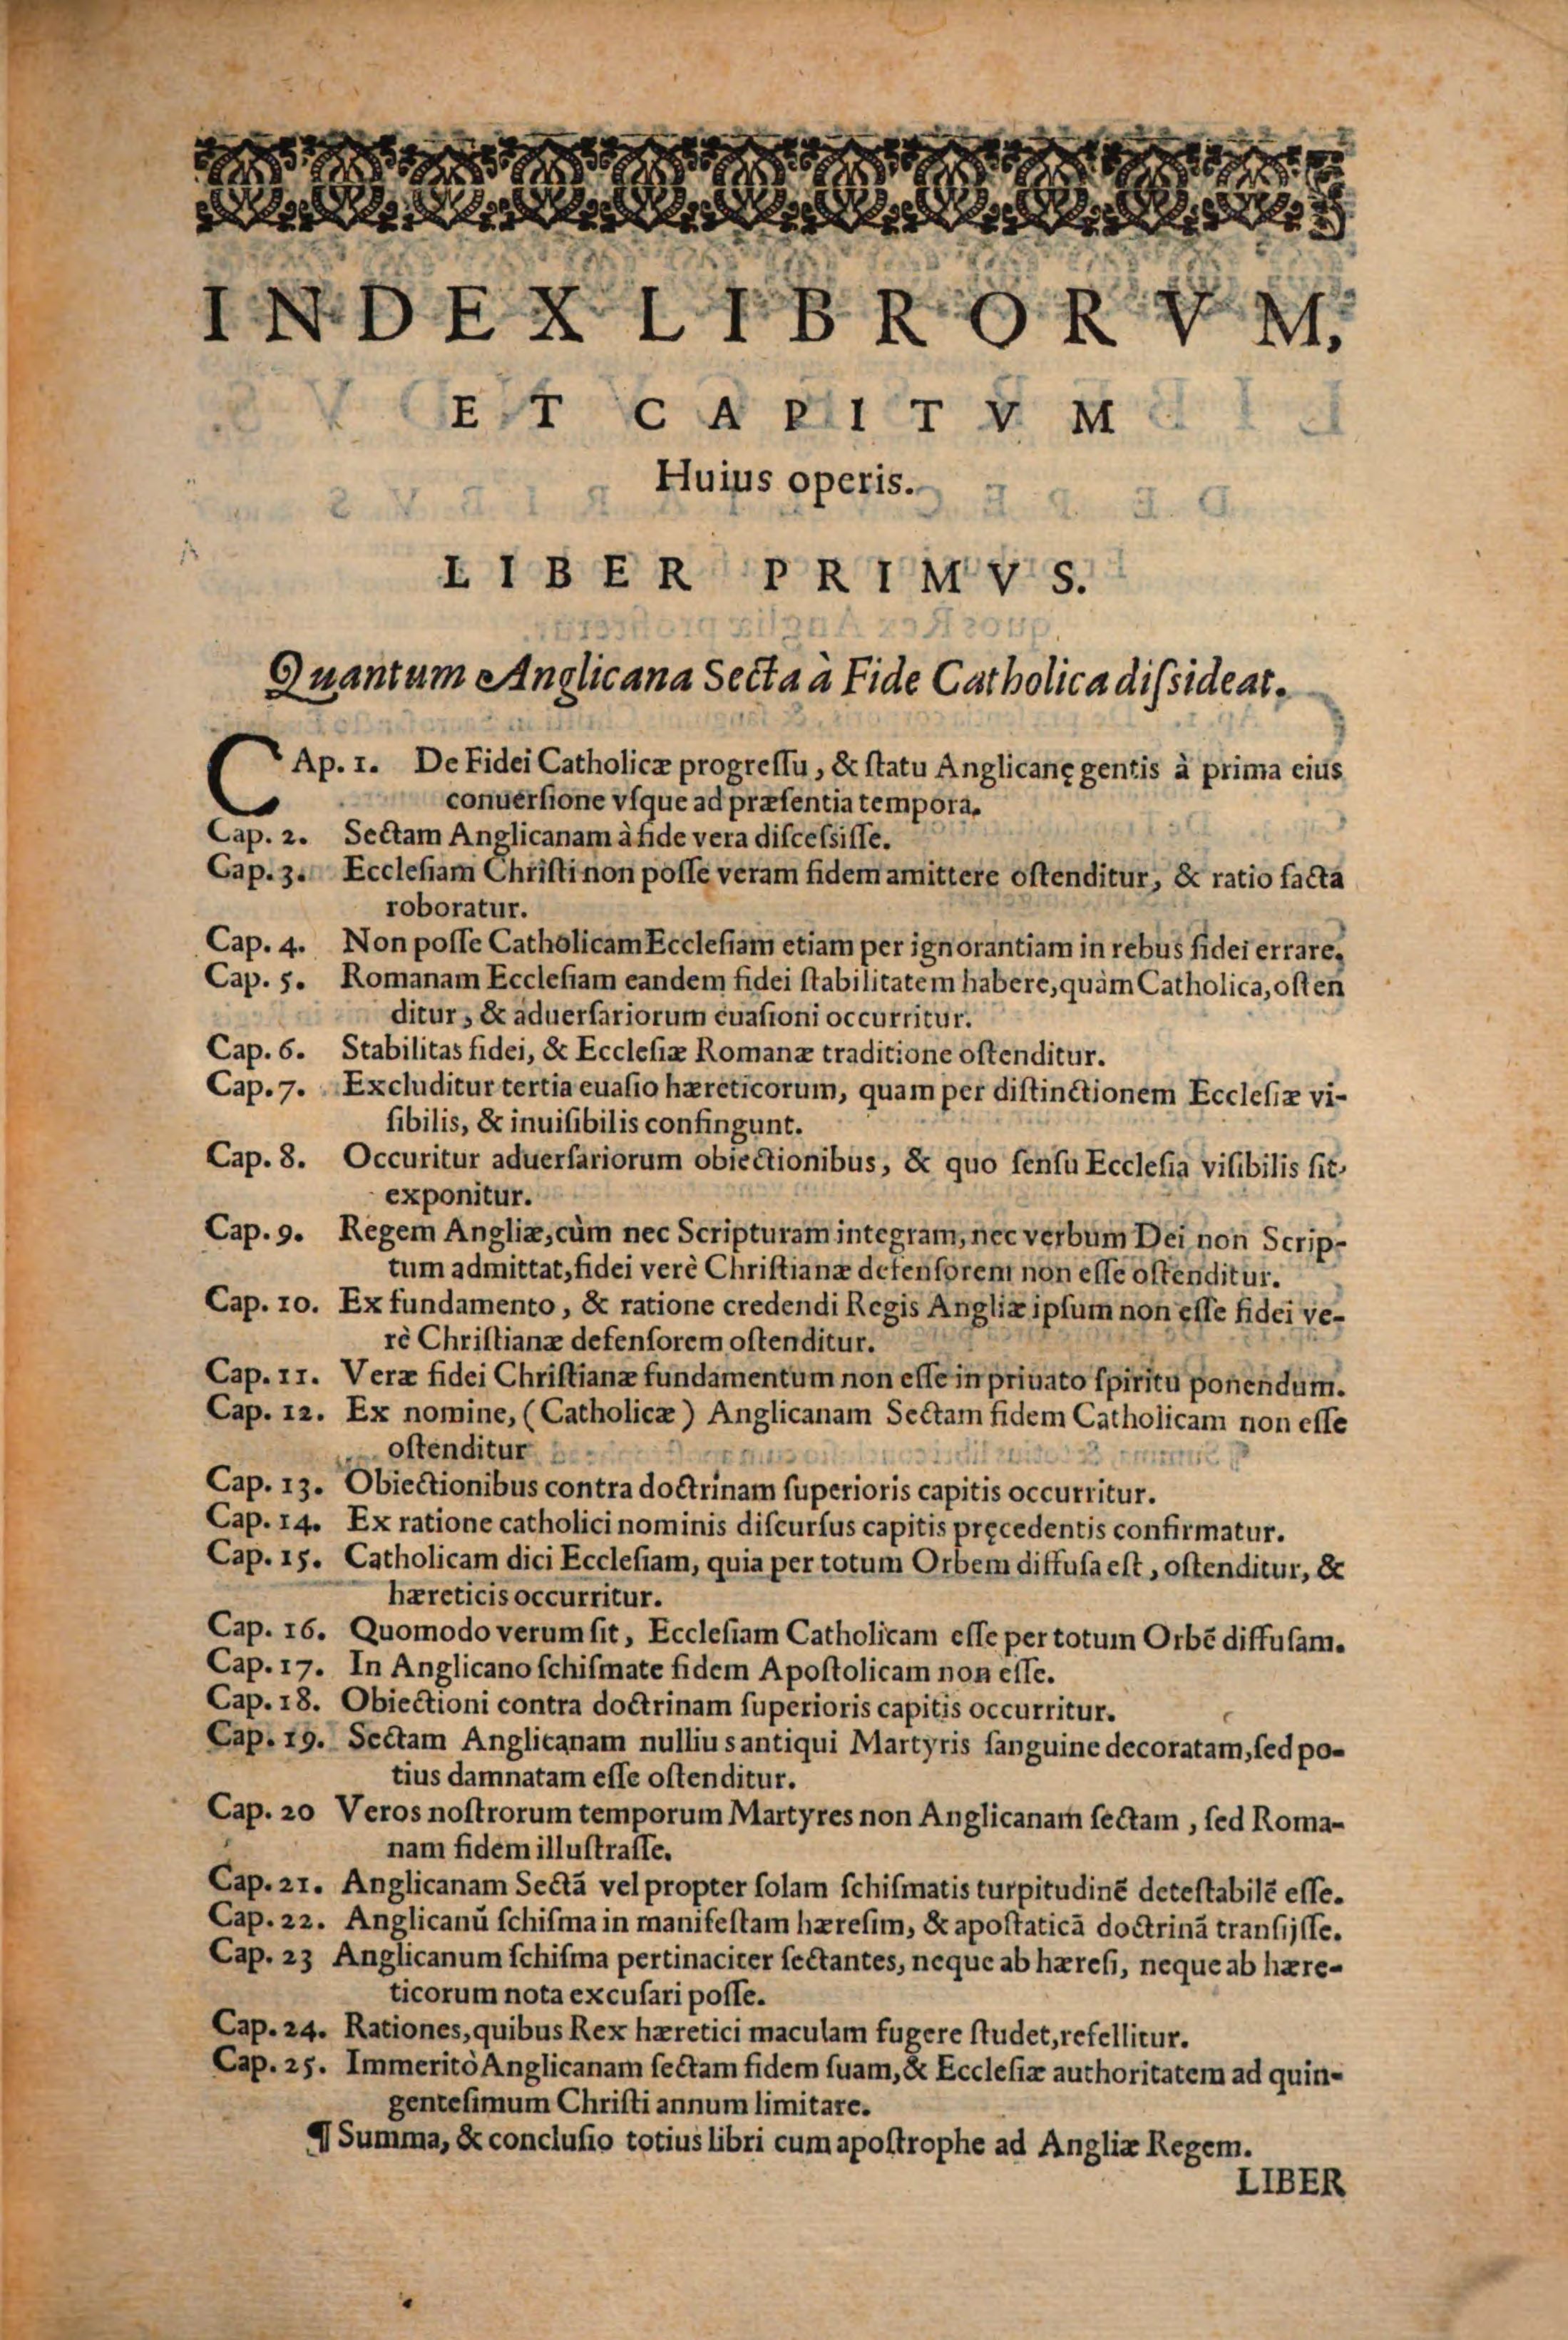 INDEX LIBRORVM,
ET CAPITVM
Huius operis.
LIBER PRIMVS.
Quantum Anglicana Secta à Fide Catholica diſsideat.
CAp. 1. De Fidei Catholicæ progreſſu, & ſtatu Anglicanę gentis à prima eius
conuerſione vſque ad præſentia tempora.
Cap. 2. Sectam Anglicanam à fide vera diſceſsiſſe.
Cap. 3. Eccleſiam Chriſti non poſſe veram fidem amittere oſtenditur, & ratio facta
roboratur.
Cap. 4. Non poſſe Catholicam Eccleſiam etiam per ignorantiam in rebus fidei errare.
Cap. 5. Romanam Eccleſiam eandem fidei ſtabilitatem habere, quàm Catholica, oſten
ditur, & aduerſariorum euaſioni occurritur.
Cap. 6. Stabilitas fidei, & Eccleſiæ Romanæ traditione oſtenditur.
Cap. 7. Excluditur tertia euaſio hæreticorum, quam per diſtinctionem Eccleſiæ vi-
ſibilis, & inuiſibilis confingunt.
Cap. 8. Occuritur aduerſariorum obiectionibus, & quo ſenſu Eccleſia viſibilis ſit,
exponitur.
Cap. 9. Regem Angliæ, cùm nec Scripturam integram, nec verbum Dei non Scrip-
tum admittat, fidei verè Chriſtianæ defenſorem non eſſe oſtenditur.
Cap. 10. Ex fundamento, & ratione credendi Regis Angliæ ipſum non eſſe fidei ve-
rè Chriſtianæ defenſorem oſtenditur.
Cap. 11. Veræ fidei Chriſtianæ fundamentum non eſſe in priuato ſpiritu ponendum.
Cap. 12. Ex nomine, (Catholicæ) Anglicanam Sectam fidem Catholicam non eſſe
oſtenditur
Cap. 13. Obiectionibus contra doctrinam ſuperioris capitis occurritur.
Cap. 14. Ex ratione catholici nominis diſcurſus capitis pręcedentis confirmatur.
Cap. 15. Catholicam dici Eccleſiam, quia per totum Orbem diffuſa eſt, oſtenditur, &
hæreticis occurritur.
Cap. 16. Quomodo verum ſit, Eccleſiam Catholicam eſſe per totum Orbē diffuſam.
Cap. 17. In Anglicano ſchiſmate fidem Apoſtolicam non eſſe.
Cap. 18. Obiectioni contra doctrinam ſuperioris capitis occurritur.
Cap. 19. Sectam Anglicanam nullius antiqui Martyris ſanguine decoratam, ſed po-
tius damnatam eſſe oſtenditur.
Cap. 20 Veros noſtrorum temporum Martyres non Anglicanam ſectam, ſed Roma-
nam fidem illuſtraſſe.
Cap. 21. Anglicanam Sectā vel propter ſolam ſchiſmatis turpitudinē deteſtabilē eſſe.
Cap. 22. Anglicanū ſchiſma in manifeſtam hæreſim, & apoſtaticā doctrinā tranſijſſe.
Cap. 23 Anglicanum ſchiſma pertinaciter ſectantes, neque ab hæreſi, neque ab hære-
ticorum nota excuſari poſſe.
Cap. 24. Rationes, quibus Rex hæretici maculam fugere ſtudet, refellitur.
Cap. 25. Immeritò Anglicanam ſectam fidem ſuam, & Eccleſiæ authoritatem ad quin-
genteſimum Chriſti annum limitare.
¶ Summa, & concluſio totius libri cum apoſtrophe ad Angliæ Regem.
LIBER